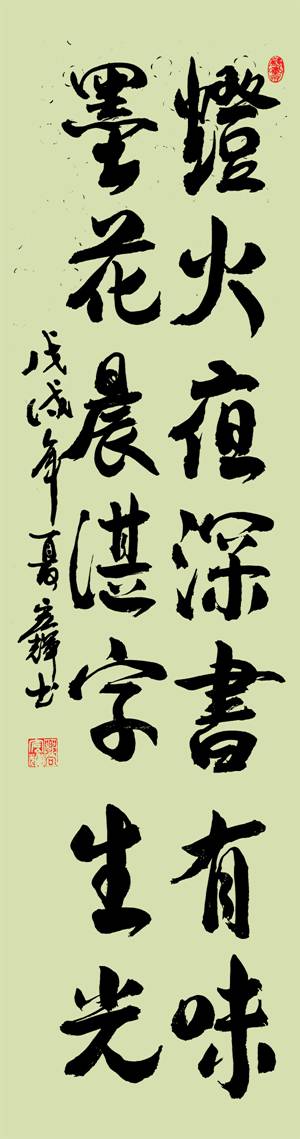 燈火夜深書有味
墨花晨湛字生光
戊戌年夏宏輝书